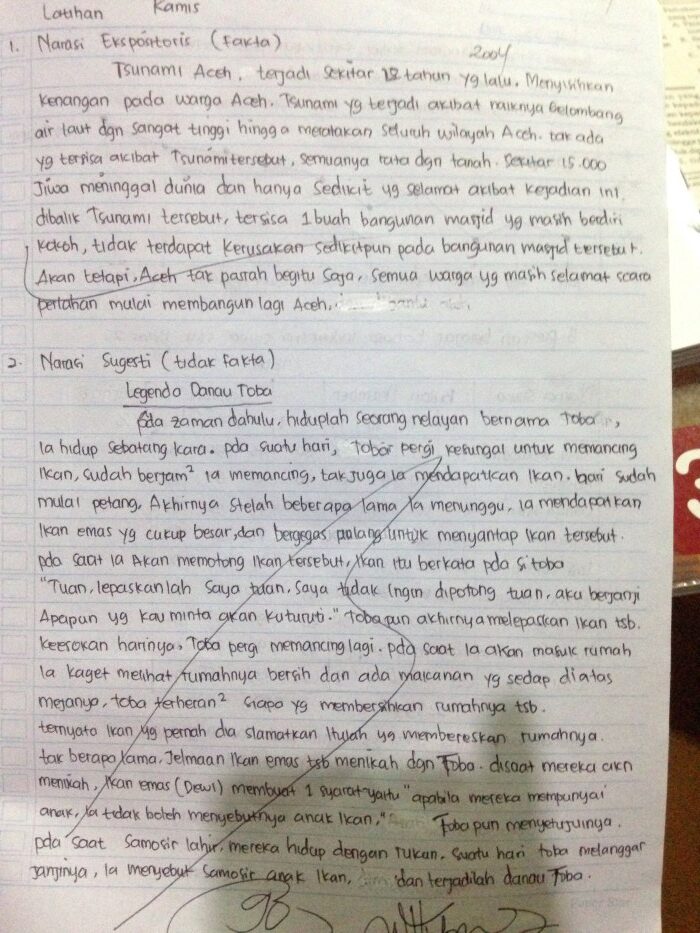 Latihan Kamis
1. Narasi Ekspositoris (Fakta)
2004
Tsunami Aceh, terjadi sekitar 12 tahun yg lalu. Menyisihkan
kenangan pada warga Aceh. Tsunami yg terjadi akibat naiknya Gelombang
air laut dgn sangat tinggi hingga meratakan seluruh wilayah Aceh. tak ada
yg tersisa akibat Tsunami tersebut, semuanya rata dgn tanah. Sekitar 15.000
Jiwa meninggal dunia dan hanya sedikit yg selamat akibat kejadian ini.
dibalik Tsunami tersebut, tersisa 1 buah bangunan masjid yg masih berdiri
kokoh, tidak terdapat kerusakan sedikitpun pada bangunan masjid tersebut.
Akan tetapi, Aceh tak pasrah begitu saja, semua warga yg masih selamat scara
perlahan mulai membangun lagi Aceh.
2. Narasi Sugesti (tidak fakta)
Legenda Danau Toba
pda zaman dahulu, hiduplah seorang nelayan bernama Toba,
Ia hidup sebatang kara. pda suatu hari, Toba pergi kesungai untuk memancing
Ikan, sudah berjam² ia memancing, tak juga ia mendapatkan Ikan. hari sudah
mulai petang, Akhirnya stelah beberapa lama Ia menunggu, Ia mendapatkan
Ikan emas yg cukup besar, dan bergegas pulang untuk menyantap Ikan tersebut.
pda saat Ia Akan memotong Ikan tersebut, Ikan itu berkata pda si toba
"Tuan, lepaskanlah saya tuan, saya tidak ingin dipotong tuan, aku berjanji
Apapun yg kau minta akan kuturuti." Toba pun akhirnya melepaskan Ikan tsb.
keesokan harinya, Toba pergi memancing lagi. pda saat Ia akan masuk rumah
Ia kaget melihat rumahnya bersih dan ada makanan yg sedap diatas
mejanya, toba terheran² siapa yg membersihkan rumahnya tsb.
ternyata Ikan yg pernah dia slamatkan Itulah yg membereskan rumahnya.
tak berapa lama, Jelmaan Ikan emas tsb menikah dgn Toba. disaat mereka akn
menikah, Ikan emas (Dewi) membuat 1 syarat yaitu "apabila mereka mempunyai
anak, Ia tidak boleh menyebutnya anak Ikan," Toba pun menyetujuinya.
pda saat Samosir lahir, mereka hidup dengan rukun. suatu hari toba melanggar
janjinya, Ia menyebut Samosir anak Ikan, dan terjadilah danau Toba.
98